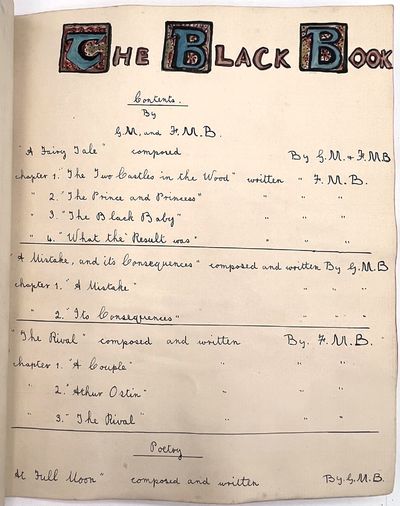 The Black Book
Contents.
By
G.M. and F.M.B.
"A Fairy Tale" composed By G.M. & F.MB
chapter 1. "The Two Castles in the Wood" written " F.M.B.
" 2. "The Prince and Princess" " " "
" 3. "The Black Baby" " " "
" 4. "What the Result was" " " "
"A Mistake, and its Consequences" composed and written By G.M.B
chapter 1. "A Mistake" " "
" 2. "Its Consequences" " "
"The Rival" composed and written By. F.M.B.
chapter 1. "A Couple" " " "
" 2. "Athur Ostin" " " "
" 3. "The Rival" " " "
Poetry
At Full Moon" composed and written By. G.M.B.